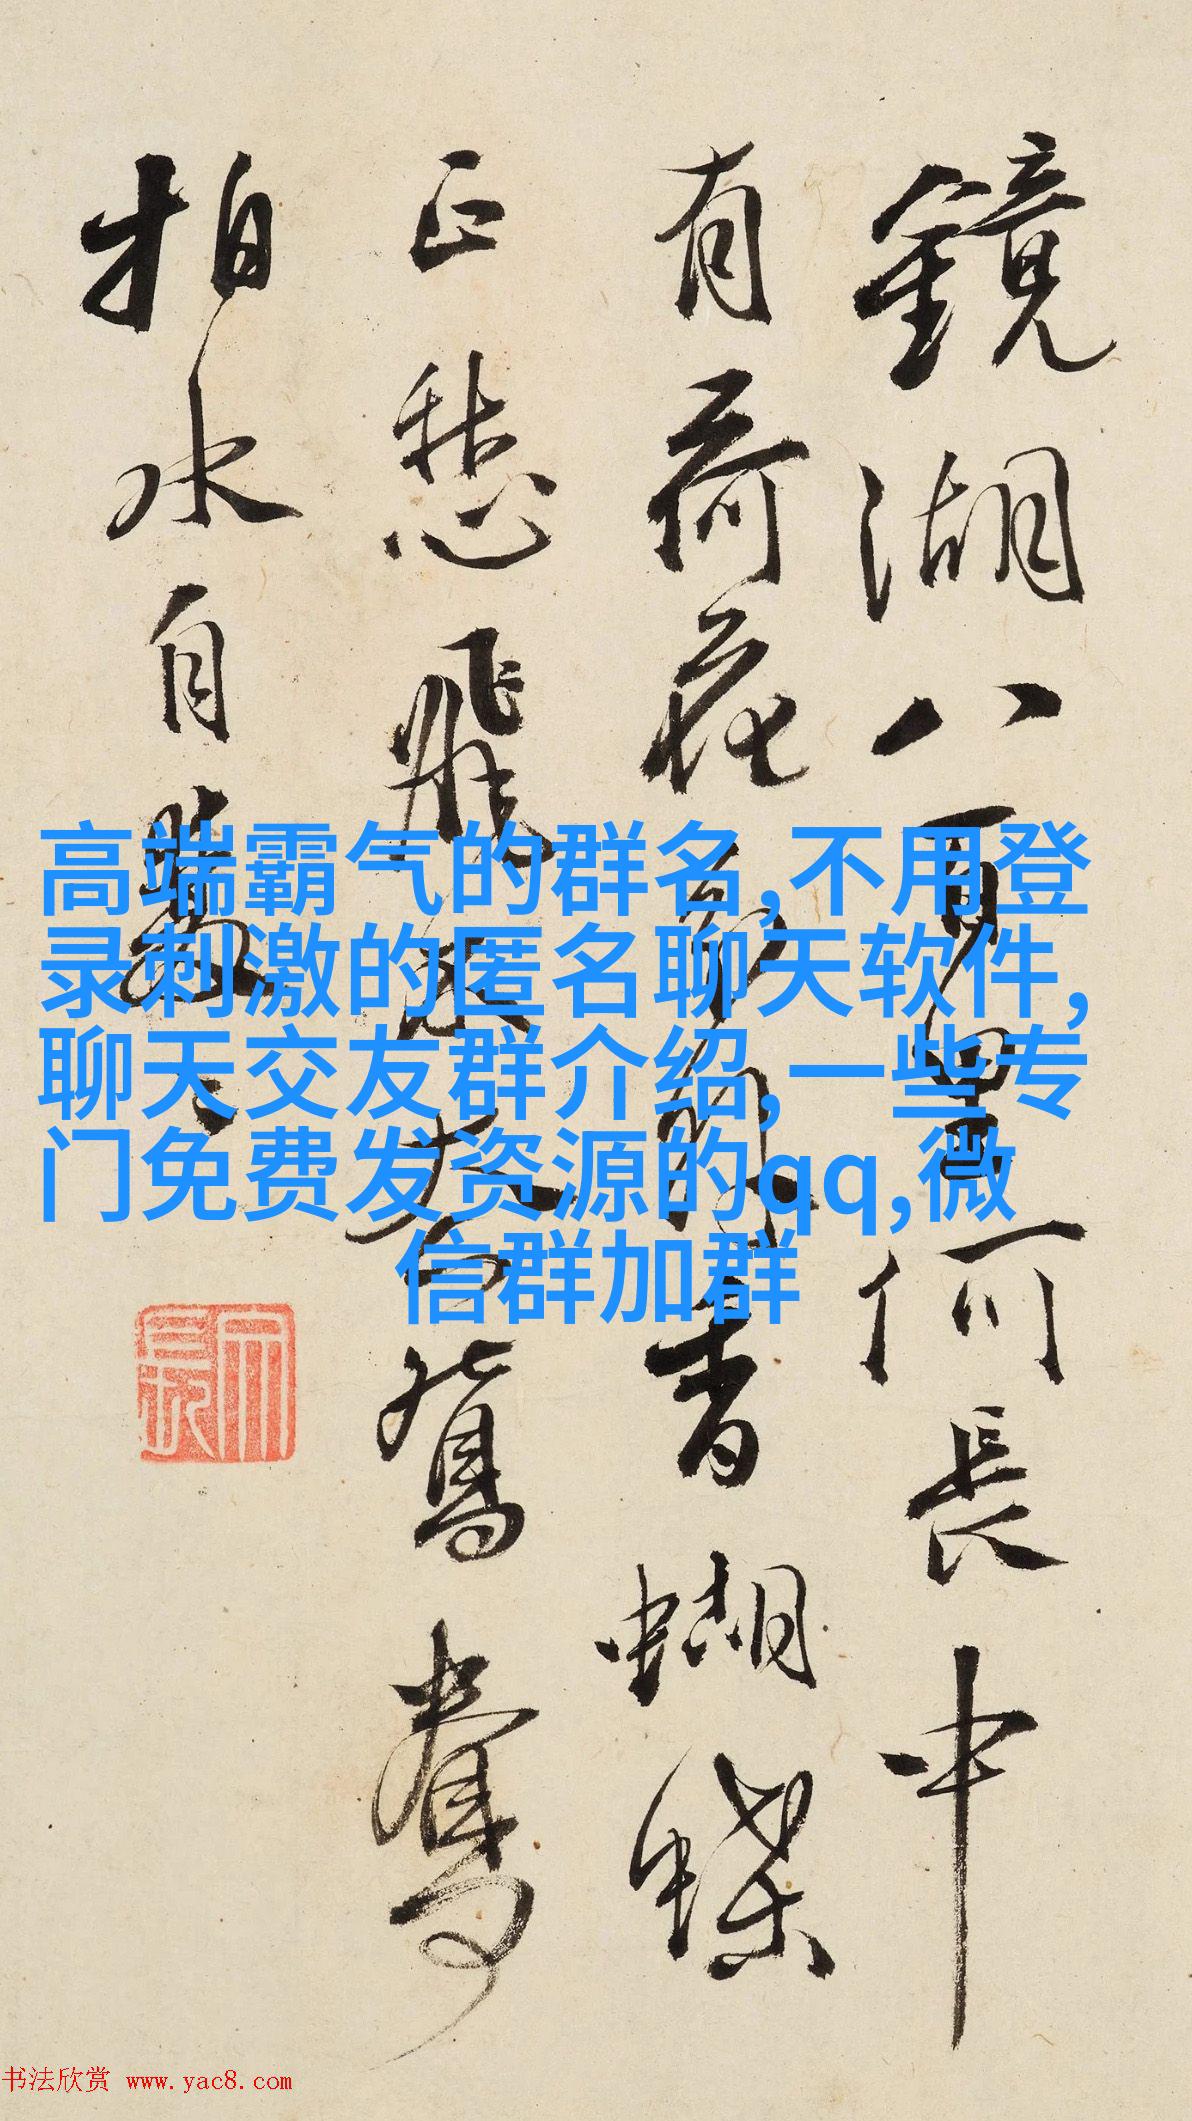 鏡湖八百里何長中
有荷花分外香蝴蝶
正愁飛不過鴛鴦
拍水自雙
高端霸气的群名,不用登
录刺激的匿名聊天软件,
聊天交友群介绍,一些专
门免费发资源的qq,微
信群加群
书法欣赏 www.yac8.com